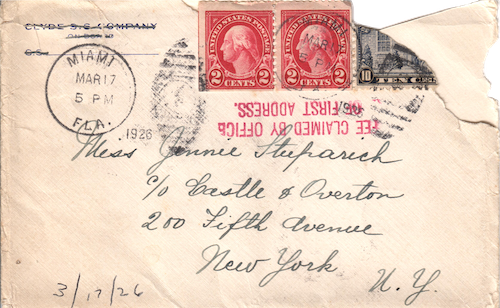 CLYDE S.S. COMPANY
MIAMI
MAR 17
5 PM
FLA.
1926
UNITED STATES POSTAGE
2 CENTS 2
UNITED STATES POSTAGE
2 CENTS 2
MAR
1926
10
FEE CLAIMED BY OFFICE
OF FIRST ADDRESS.
Miss Jennie Stuparich
c/o Castle & Overton
200 Fifth Avenue
New York
N. Y.
3/17/26